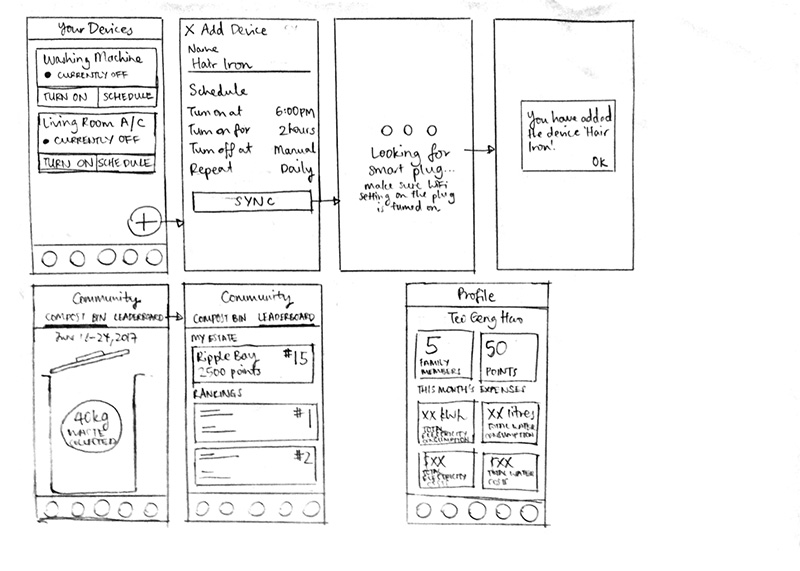 Your Devices
Washing Machine
• CURRENTLY OFF
TURN ON SCHEDULE
Living Room A/C
• CURRENTLY OFF
TURN ON SCHEDULE
+
X Add Device
Name
Hair Iron
Schedule
Turn on at 6:00PM
Turn on for 2 hours
Turn off at Manual
Repeat Daily
SYNC
Looking for
smart plug...
make sure WiFi
setting on the plug
is turned on
You have added
the device 'Hair
Iron'!
OK
Community
COMPOST BIN LEADERBOARD
Jun 12-24, 2017
40kg
WASTE
COLLECTED
Community
COMPOST BIN LEADERBOARD
MY ESTATE
Ripple Bay #15
2500 points
RANKINGS
#1
#2
Profile
Teo Geng Hao
5
FAMILY
MEMBERS
50
POINTS
THIS MONTH'S EXPENSES
XX kWh
TOTAL
ELECTRICITY
CONSUMPTION
XX litres
TOTAL WATER
CONSUMPTION
$XX
TOTAL
ELECTRICITY
COSTS
$XX
TOTAL WATER
COSTS